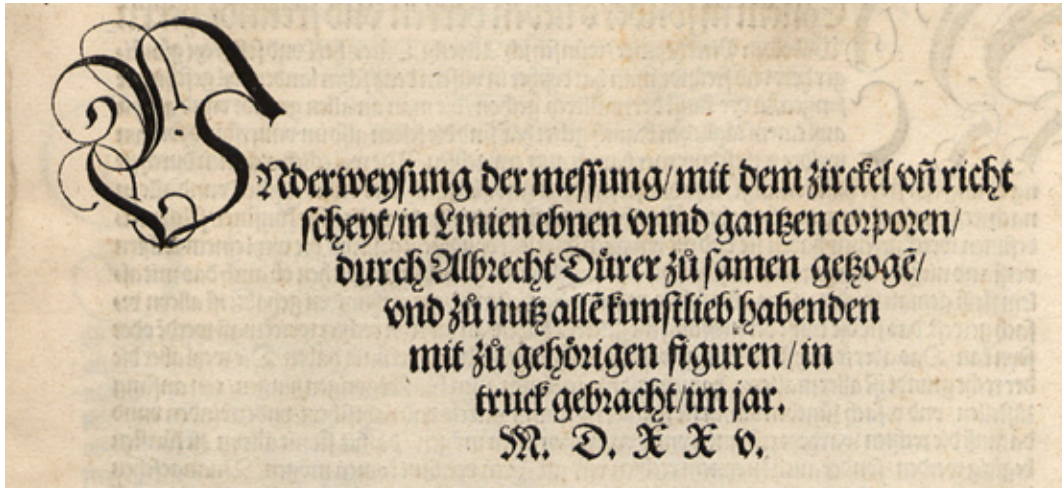 VNderweysung der messung/ mit dem zirckel vn̄ richt
scheyt/ in Linien ebnen vnnd gantzen corporen/
durch Albrecht Dürer zů samen getzogē/
vnd zů nutz allē kunstlieb habenden
mit zů gehörigen figuren/ in
truck gebracht/ im jar.
M. D. X X v.